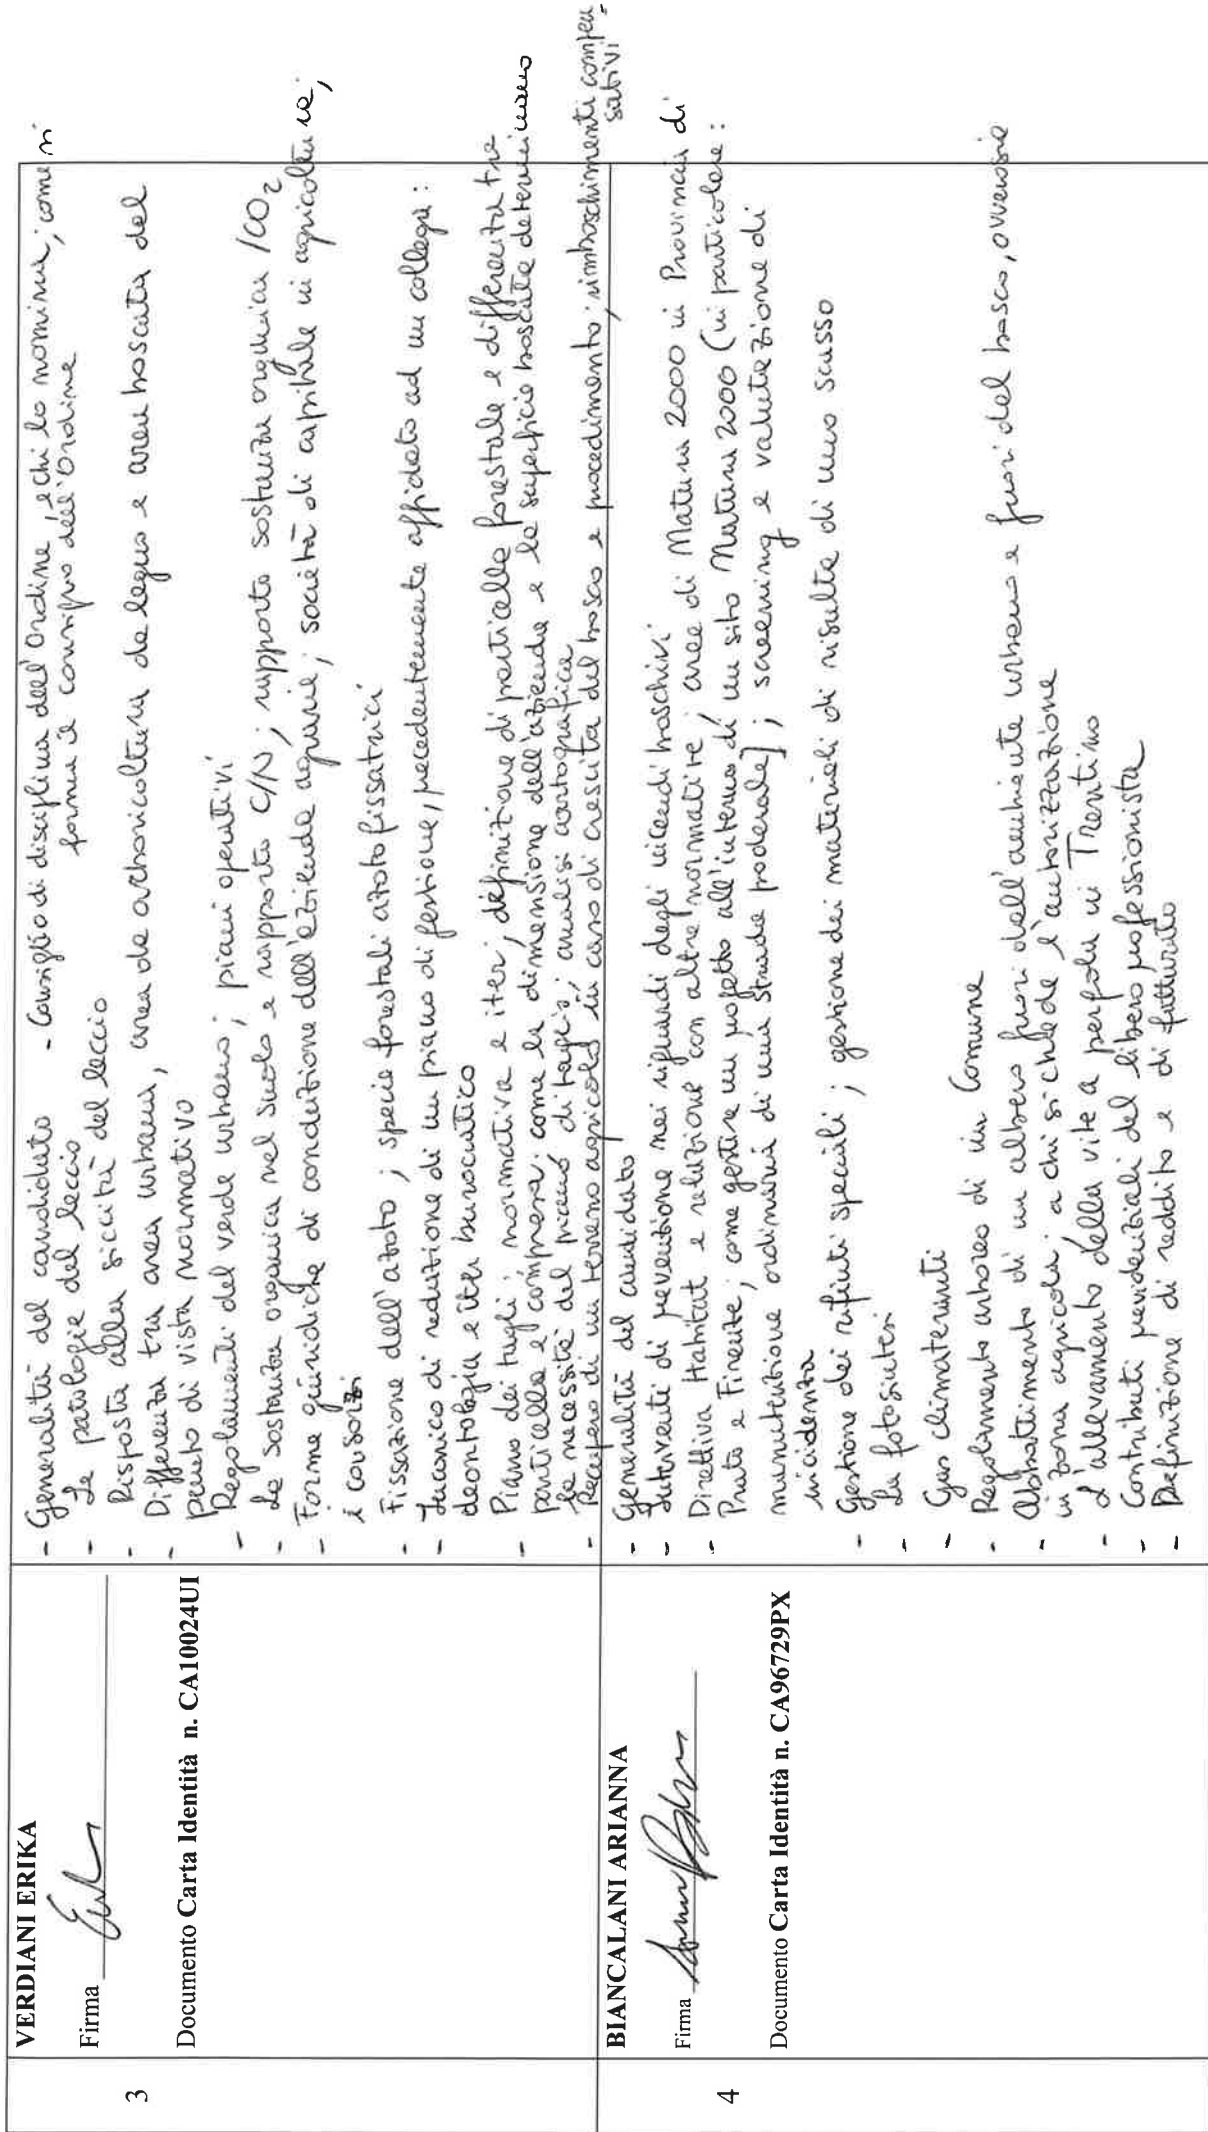 3
VERDIANI ERIKA
Firma
Documento Carta Identità n. CA10024UI
- Generalità del candidato - Consiglio di disciplina dell'Ordine, e chi lo nomina; come si
forma il consiglio dell'Ordine
- Le patologie del leccio
- Risposta alla siccità del leccio
- Differenza tra area urbana, area da arboricoltura da legno e area boscata del
punto di vista normativo
- Regolamenti del verde urbano; piani operativi
- La sostanza organica nel suolo e rapporto C/N; rapporto sostanza organica /CO2
- Forme giuridiche di conduzione dell'azienda agraria; società di capitale in agricoltura;
i consorzi
- Fissazione dell'azoto; specie forestali azotofissatrici
- Incarico di redazione di un piano di gestione, precedentemente affidato ad un collega:
deontologia e iter burocratico
- Piano dei tagli: normativa e iter; definizione di particella forestale e differenza tra
particella e compresa: come la dimensione dell'azienda e la superficie boscata determinano
la necessità del piano di taglio; analisi cartografica
- Recupero di un terreno agricolo in caso di crescita del bosco e procedimento; rimboschimenti compen-
sativi
4
BIANCALANI ARIANNA
Firma
Documento Carta Identità n. CA96729PX
- Generalità del candidato
- Interventi di prevenzione nei riguardi degli incendi boschivi
- Direttiva Habitat e relazione con altre normative; aree di Natura 2000 in Provincia di
Prato e Firenze; come gestire un progetto all'interno di un sito Natura 2000 (in particolare:
manutenzione ordinaria di una strada poderale]; screening e valutazione di
incidenza
- Gestione dei rifiuti speciali; gestione dei materiali di risulta di uno scasso
- La fotosintesi
- Gas climateranti
- Regolamento arboreo di un Comune
- Abbattimento di un albero fuori dell'ambiente urbano e fuori del bosco, ovverosia
in zona agricola: a chi si chiede l'autorizzazione
- L'allevamento della vite a pergola in Trentino
- Contributi previdenziali del libero professionista
- Definizione di reddito e di fatturato